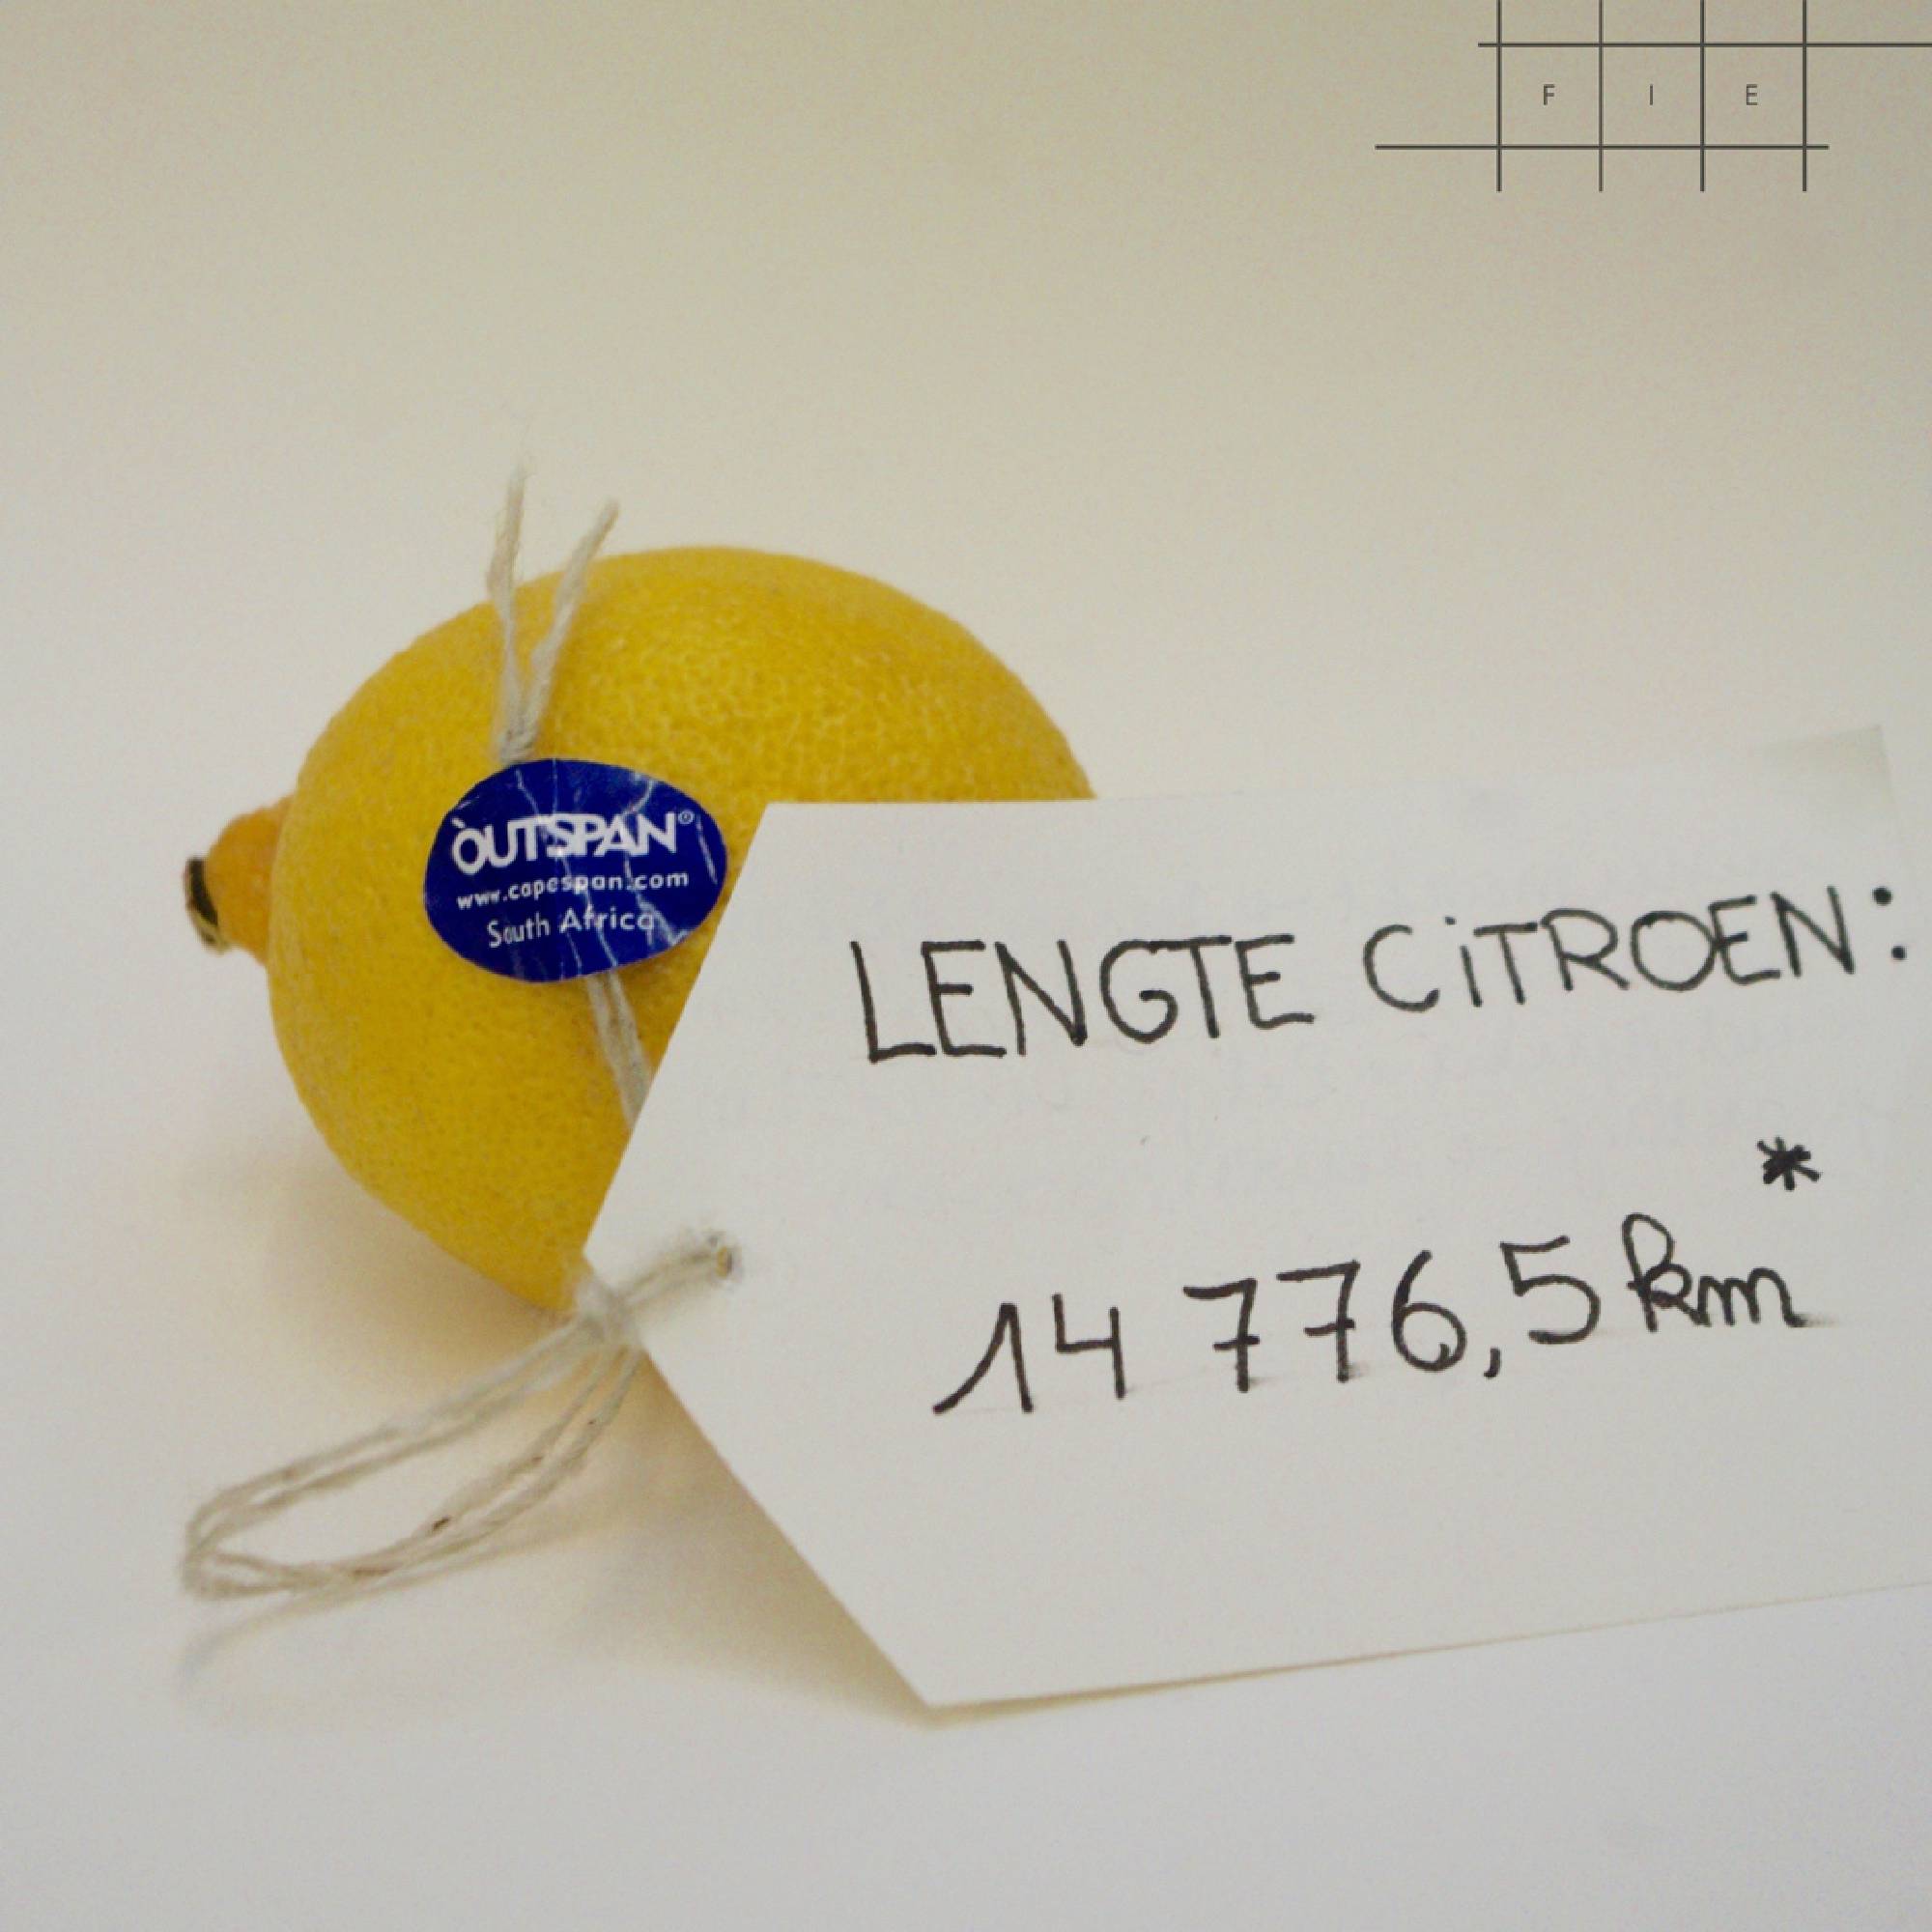 F I E
ÒUTSPAN®
www.capespan.com
South Africa
LENGTE CiTROEN:
14 776,5 km*